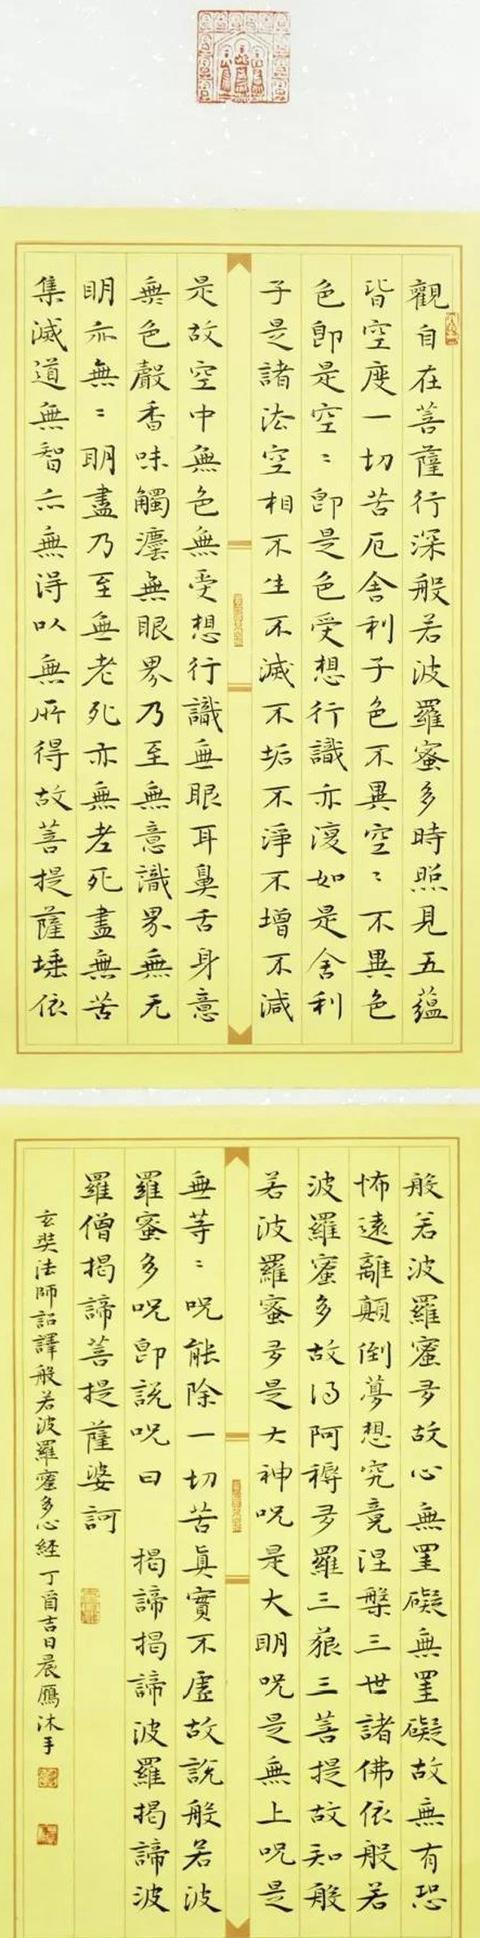 觀自在菩薩行深般若波羅蜜多時照見五蘊
皆空度一切苦厄舍利子色不異空〻不異色
色即是空〻即是色受想行識亦復如是舍利
子是諸法空相不生不滅不垢不淨不增不減
是故空中無色無受想行識無眼耳鼻舌身意
無色聲香味觸灋無眼界乃至無意識界無无
明亦無〻明盡乃至無老死亦無老死盡無苦
集滅道無智亦無得以無所得故菩提薩埵依
般若波羅蜜多故心無罣礙無罣礙故無有恐
怖遠離顛倒夢想究竟涅槃三世諸佛依般若
波羅蜜多故得阿耨多羅三藐三菩提故知般
若波羅蜜多是大神咒是大明咒是無上咒是
無等〻咒能除一切苦真實不虛故說般若波
羅蜜多咒即說咒曰 揭諦揭諦波羅揭諦波
羅僧揭諦菩提薩婆訶
玄奘法師詔譯般若波羅蜜多心經丁酉吉日晨鴈沐手